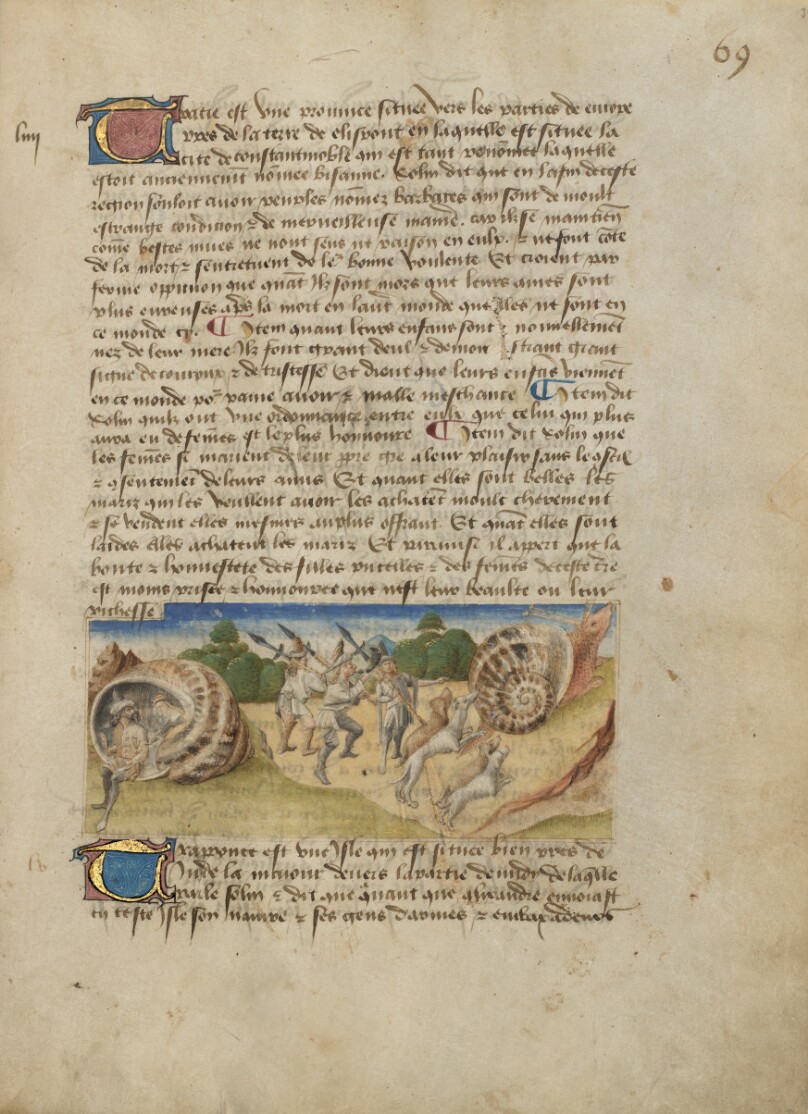 69
liiii
Tracie est vne prouince situee vers les parties de europe
pres de la terre de elispont en laquelle est situee la
cite de constantinoble qui est tant renommee laquelle
estoit anciennemt nomee bisanne. Solin dit que en la fin de ceste
region souloit auoir peuples nomez barbares qui sont de moult
estrange condicion & de merueilleuse maniere. car ilz se maintienet
come bestes mues ne nont sens ne raison en eulx. & ne font conte
de la mort & sentretuent de le bonne voulente Et croient par
ferme oppinion que quat Ilz sont mors que leurs ames sont
plus eureuses aps la mort en laut monde quelles ne sont en
ce monde cy. ¶ Item quant leurs enfans sont nouuellemet
nez de leur mere Ilz font grant deul & demonstrant grant
signe de courroux & de tristesse Et dient que leurs enfas viennet
en ce monde por paine auoir & malle meschance ¶ Item dit
Solin quilz ont vne ordonnance entre eulx que celui qui plus
aura eu de femes est le plus honnoure ¶ Item dit Solin que
les femes se marient de leur ppre gre a leur plaisir sans le
& osentemet de leurs amis Et quant elles sont belles les
mariz qui les veullent auoir les achatet moult chierement
& se vendent elles mesmes au plus offrant Et quat elles sont
laides elles achattent les mariz Et par ainsi il appert que la
bonte & honnestete des filles pucelles & des femes de ceste tre
est moins prisee & honnouree que nest leur beaulte ou leur
richesse
Traponee est vne Isle qui est situee bien pres de
Inde la maiour deuers la partie de midi de laqlle
parle solin & dit que quant que alixandre enuoiast
en ceste Isle son nauire & ses gens darmes & embaxadeurs